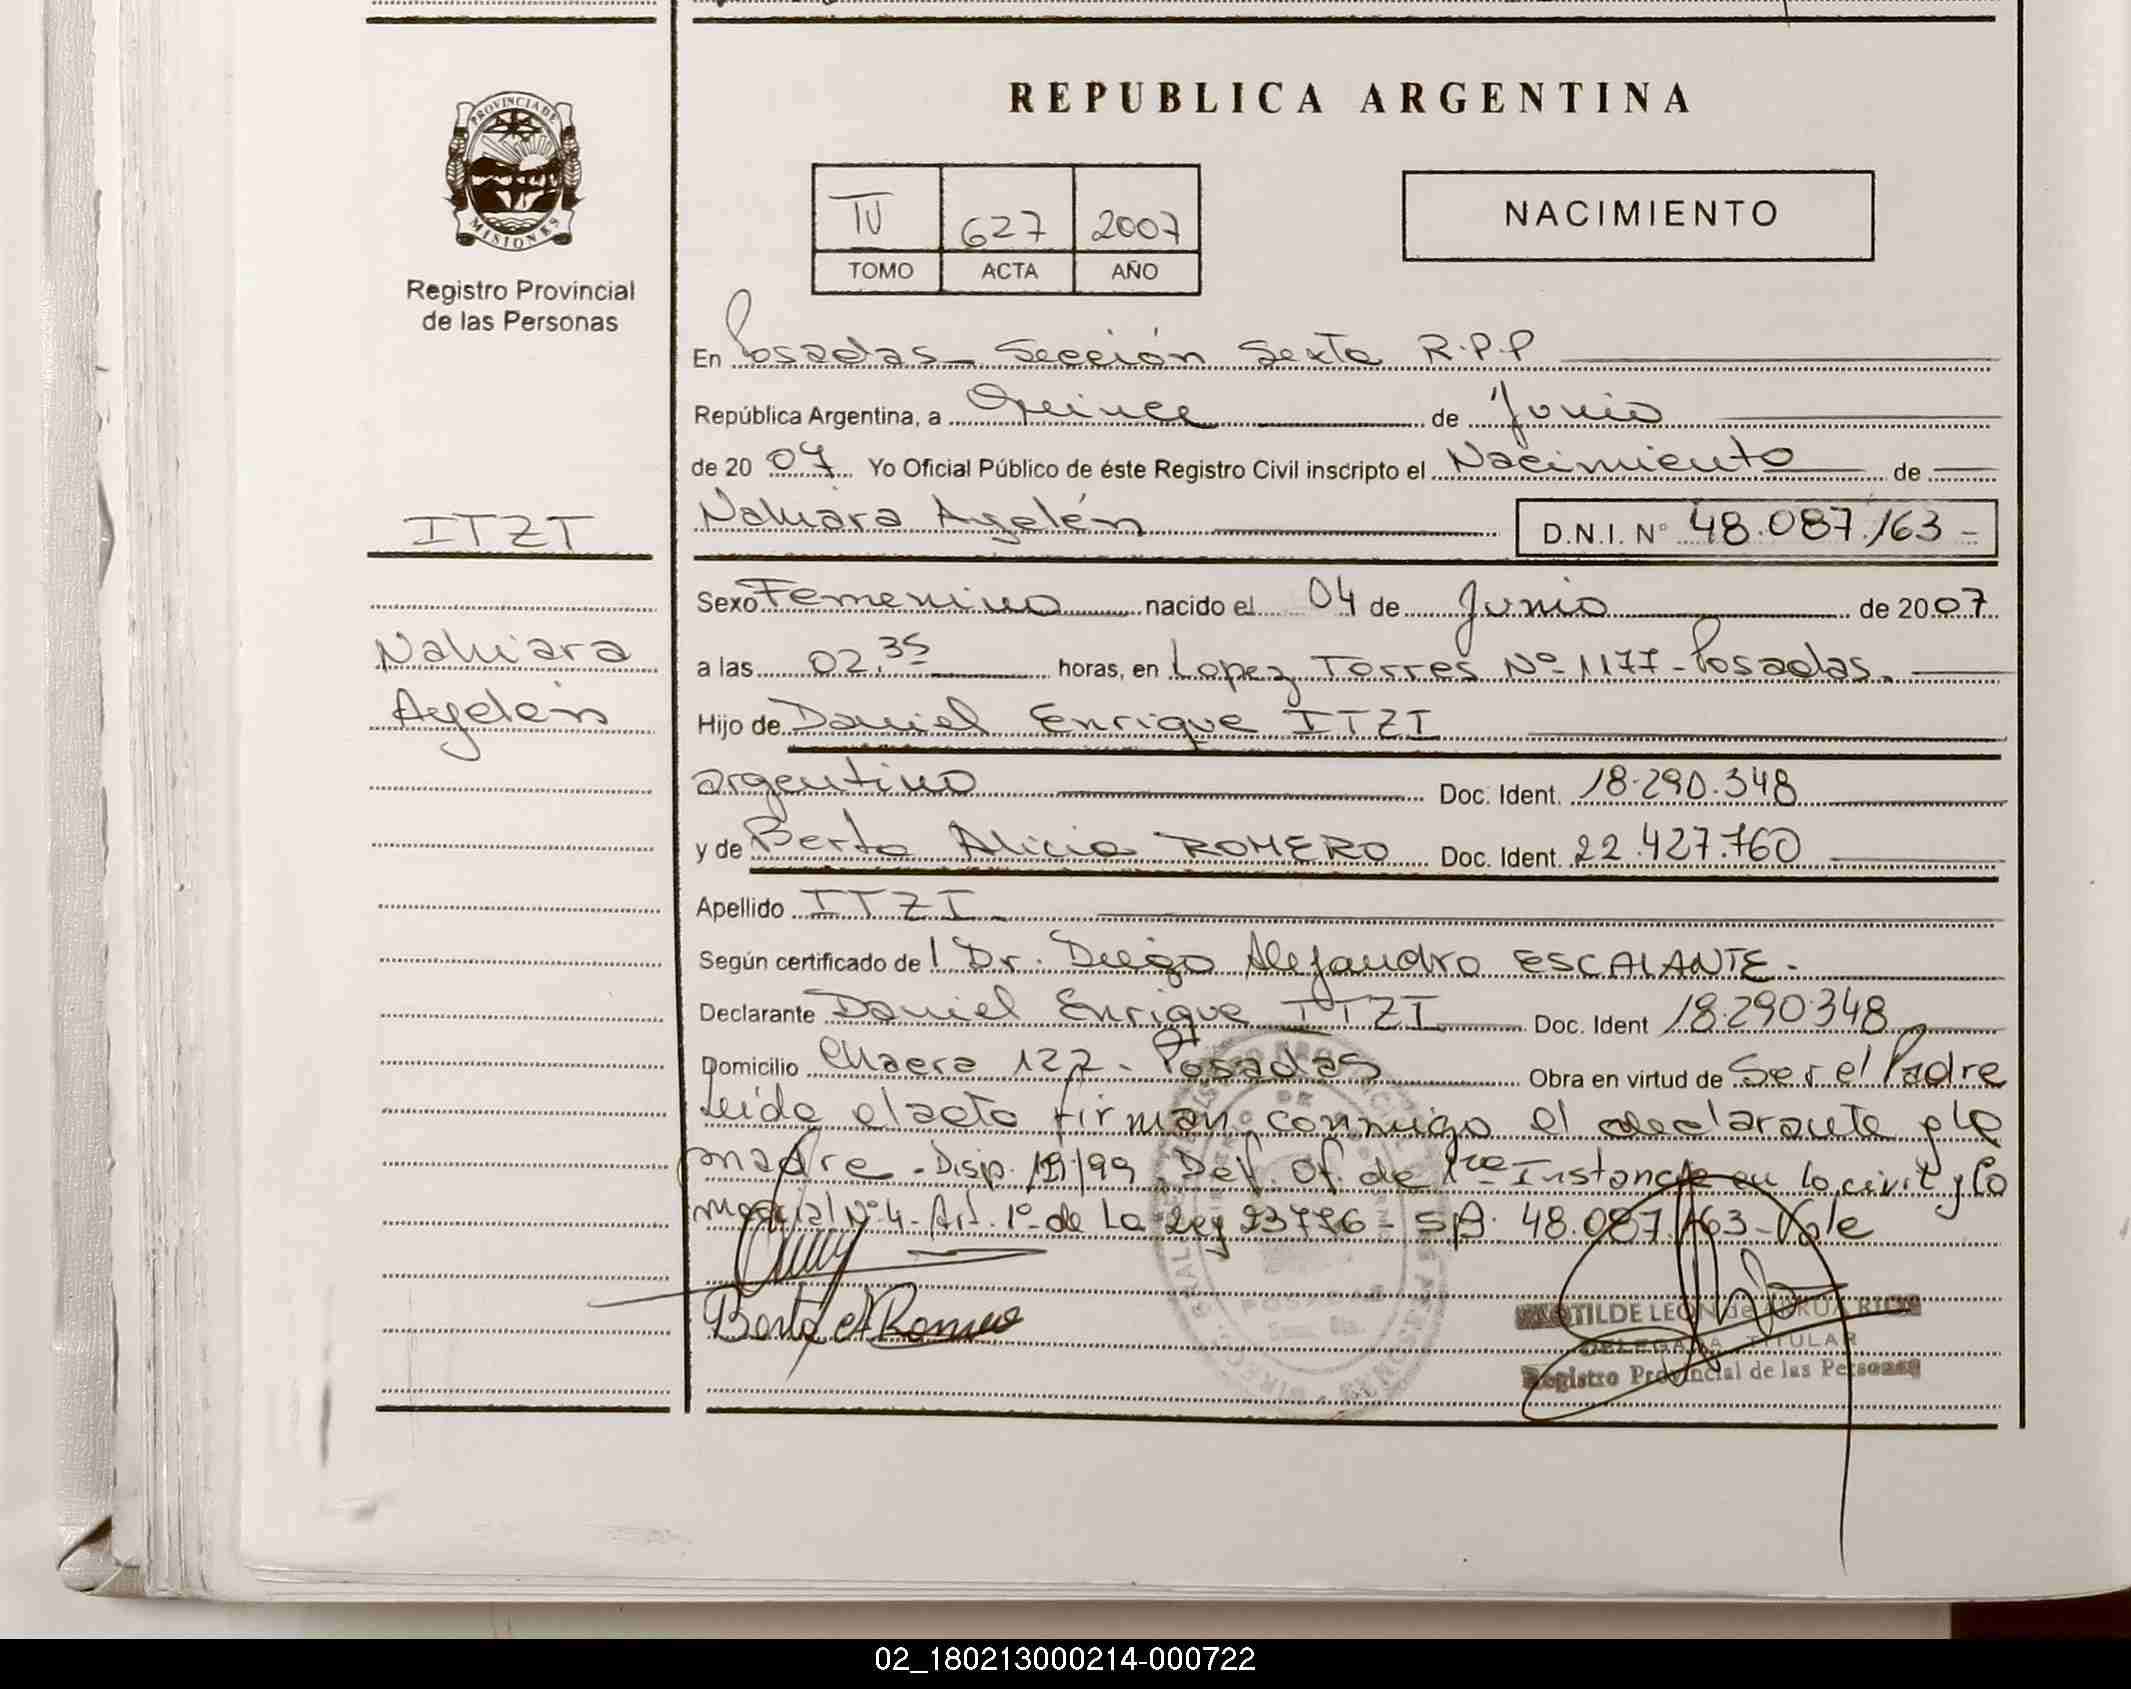 REPUBLICA ARGENTINA
PROVINCIA DE
MISIONES
Registro Provincial
de las Personas
IV 627 2007
TOMO ACTA AÑO
NACIMIENTO
En Posadas - Sección Sexta R.P.P
República Argentina, a Quince de Junio
de 20 07 Yo Oficial Público de éste Registro Civil inscripto el Nacimiento de
Nahiara Ayelén D.N.I. N° 48.087.163 -
ITZI
Sexo Femenino nacido el 04 de Junio de 20 07
Nahiara
a las 02.35 horas, en Lopez Torres Nº 1177 - Posadas.
Ayelén
Hijo de Daniel Enrique ITZI
argentino Doc. Ident. 18.290.348
y de Berta Alicia ROMERO Doc. Ident. 22.427.760
Apellido ITZI
Según certificado de l Dr. Diego Alejandro ESCALANTE.
Declarante Daniel Enrique ITZI Doc. Ident 18.290.348
Domicilio Chacra 122 - Posadas Obra en virtud de Ser el Padre
Leida el acta firman conmigo el declarante y la
madre - Disp. /99 Def. Of. de 1ra Instancia en lo civil y Co
mercial Nº 4 - Art. 1º de La Ley 23776 - S/B. 48.087.163 - Vale
Berta A Romero
POSADAS
MATILDE LEON de RIOS
DELEGADA TITULAR
Registro Provincial de las Personas
02_180213000214-000722